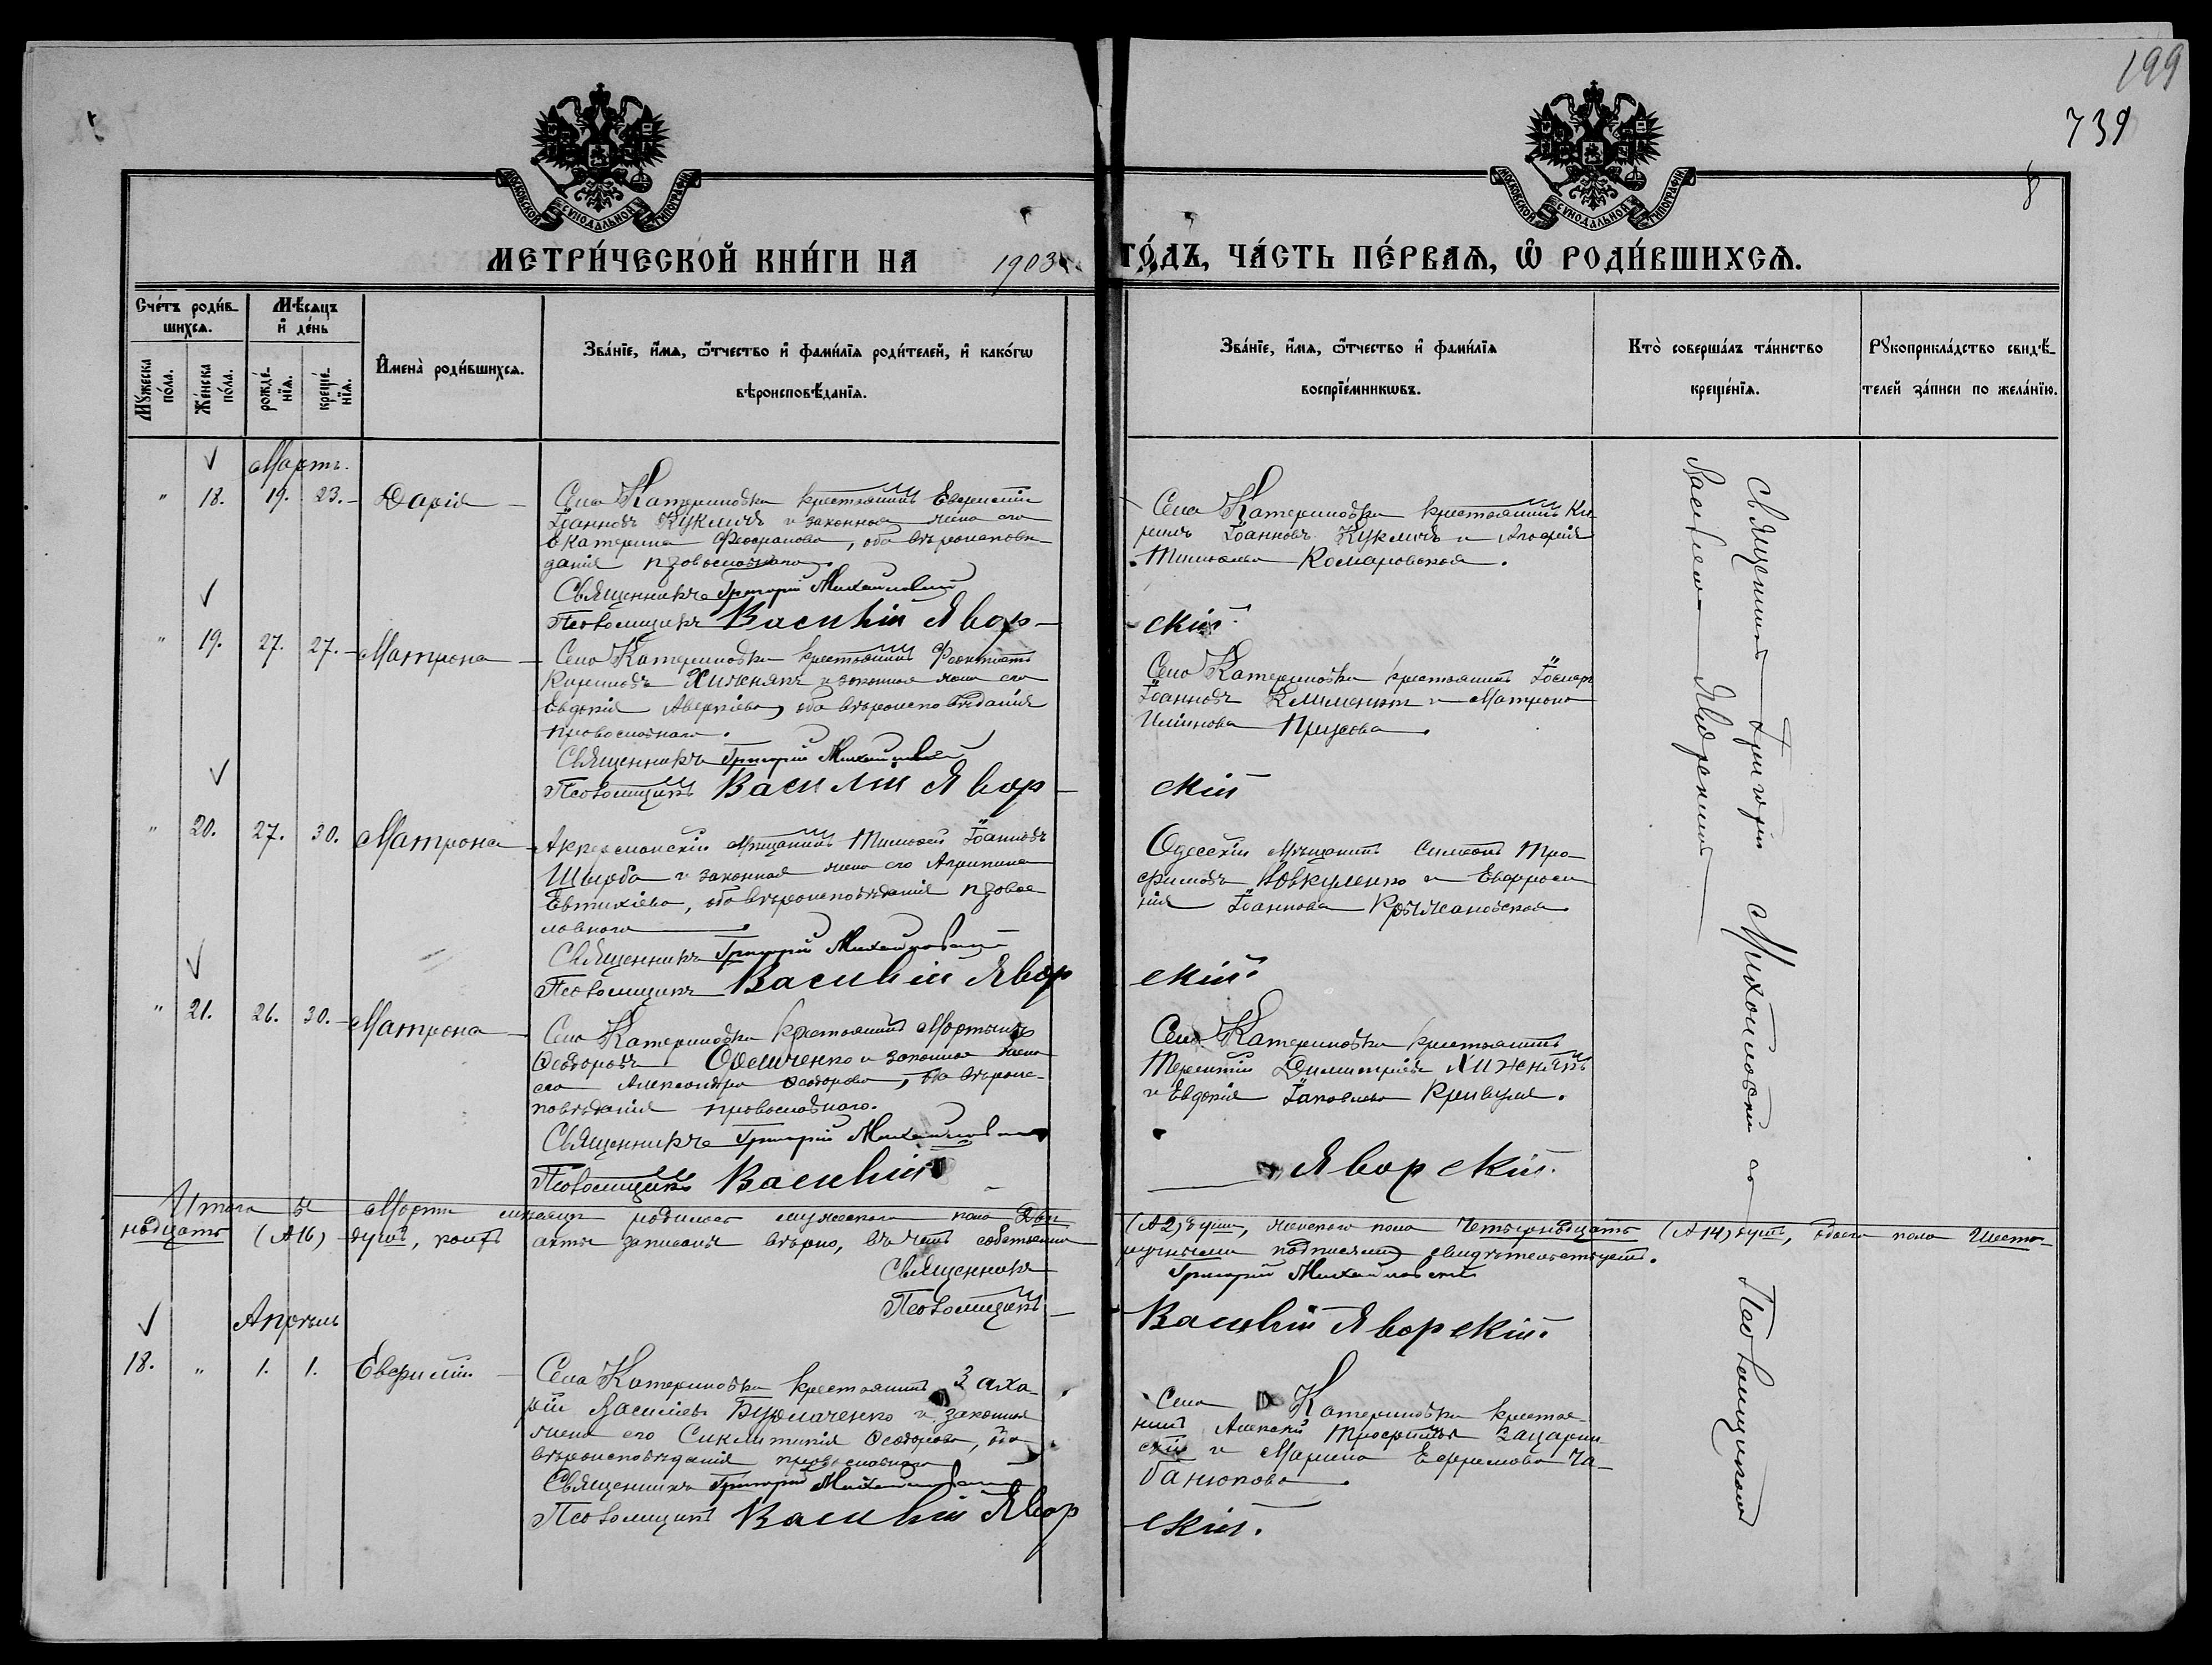 199
739
8
МОСКОВСКОЙ СУНОДАЛЬНОЙ ТИПОГРАФІИ
МОСКОВСКОЙ СУНОДАЛЬНОЙ ТИПОГРАФІИ
МЕТРИ́ЧЕСКОЙ КНИ́ГИ НА 1903 ГО́ДЪ, ЧА́СТЬ ПЕ́РВАѦ, Ѿ РОДИ́ВШИХСѦ.
Сче́тъ роди́в-
шихсѧ.
Мꙋ́жеска по́ла.
Же́нска по́ла.
Мѣ́сѧцъ
и҆ де́нь
рожде́-
нїѧ.
креще́-
нїѧ.
И҆мена̀ роди́вшихсѧ.
Зва́нїе, и҆́мѧ, ѻ҆́тчество и҆ фами́лїѧ роди́телей, и҆ како́гѡ
вѣроисповѣ́данїѧ.
Зва́нїе, и҆́мѧ, ѻ҆́тчество и҆ фами́лїѧ
воспрїе́мникѡвъ.
Кто̀ соверша́лъ та́инство
креще́нїѧ.
Рꙋкоприкла́дство свидѣ́-
телей за́писи по жела́нїю.
Мартъ.
" 18. 19. 23. Дарія
Села Катериновки крестьянинъ Евфимій
Іоанновъ Кукличъ и законная жена его
Екатерина, оба вѣроисповѣ-
данія православнаго.
Священникъ Григорій Михайловскій
Псаломщикъ Василій Явор-
Села Катериновки крестьянинъ Ки-
риллъ Іоанновъ Кукличъ и
Комаровская.
скій.
" 19. 27. 27. Матрона
Села Катериновки крестьянинъ Феоктистъ
Кириловъ Хиженякъ и законная жена его
Евдокія Аверкіева, оба вѣроисповѣданія
православнаго.
Священникъ Григорій Михайловскій
Псаломщикъ Василій Явор-
Села Катериновки крестьянинъ
Іоанновъ и Матрона
скій
" 20. 27. 30. Матрона
Аккерманскій мѣщанинъ Тимофей Іоанновъ
Щырба и законная жена его Агрипина
Евтихіева, оба вѣроисповѣданія право-
славнаго
Священникъ Григорій Михайловскій
Псаломщикъ Василій Явор
Одесскій мѣщанинъ Симеонъ Тро-
фимовъ Вовкуленко и Евфроси-
нія Іоаннова Крыжановская
скій.
" 21. 26. 30. Матрона
Села Катериновки крестьянинъ Мартинъ
Ѳеодоровъ и законная жена
его Александра Ѳеодорова, оба вѣроис-
повѣданія православнаго.
Священникъ Григорій Михайловскій
Псаломщикъ Василій
Села Катериновки крестьянинъ
Терентій Димитріевъ Хиженякъ
и Евдокія Іаковлева Кривуля.
Яворскій.
Итого въ Мартѣ мѣсяцѣ родилось мужескаго пола Двѣ- (А2) душъ, женскаго пола Четырнадцать (А14) душъ, обоего пола Шест-
надцать (А16) душъ, акты записаны вѣрно, въ чемъ собственно-
ручными подписями свидѣтельствуемъ.
Священникъ Григорій Михайловскій
Псаломщикъ Василій Яворскій.
Апрѣль
18. " 1. 1. Евфимій
Села Катериновки крестьянинъ Заха-
рій Васильевъ и законная
жена его Синклитикія Ѳеодорова, оба
вѣроисповѣданія православнаго
Священникъ Григорій Михайловскій
Псаломщикъ Василій Явор
Села Катериновки крестья-
нинъ Алексѣй Трофимовъ
и Марина Ефремова Ча-
банюкова
скій.
Священникъ Григорій Михайловскій съ Псаломщикомъ
Василіемъ Яворскимъ